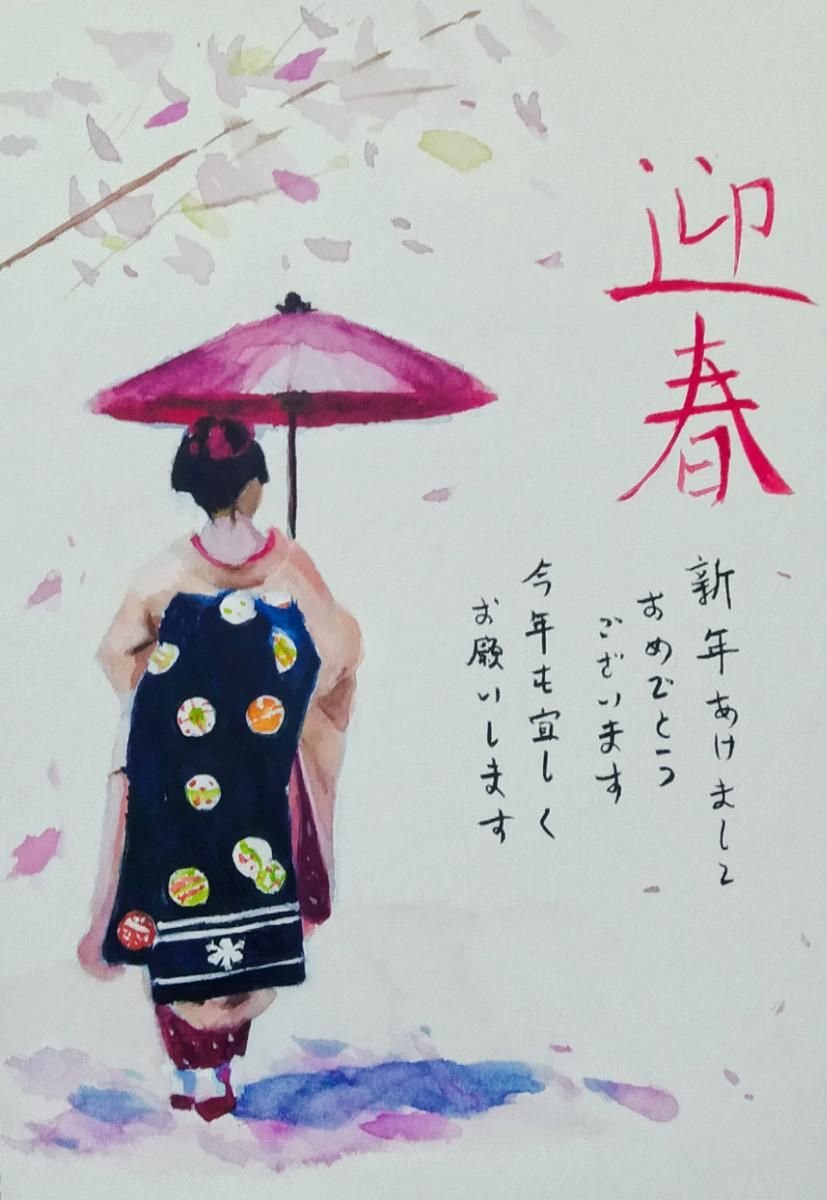 迎春
新年あけまして
おめでとう
ございます
今年も宜しく
お願いします